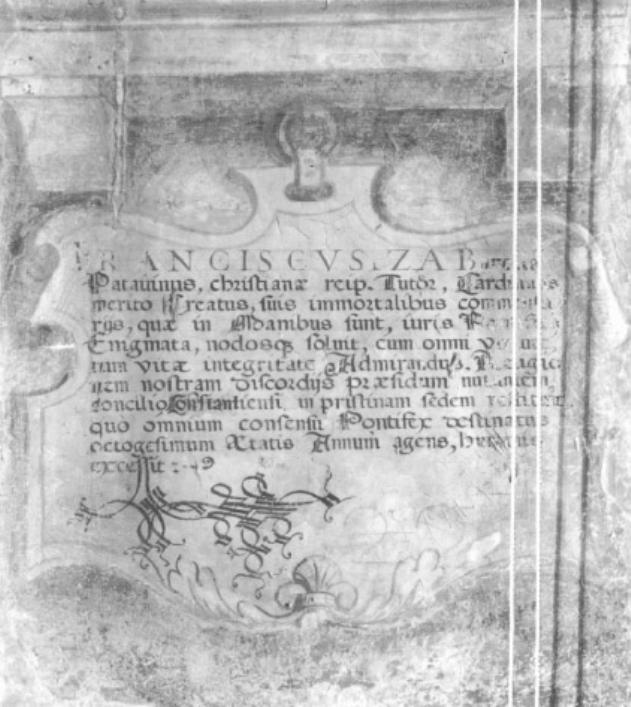 FRANCISCVS ZAB
Patavinus, christianæ reip. Tutor, Cardinalis
merito Creatus, suis immortalibus commenta
rijs, quæ in Manibus sunt, iuris
Enigmata, nodosq; soluit, cum omni
tum vitæ integritate Admirandus.
nem nostram discordijs præsidum nutantem
concilio Constantiensi, in pristinam sedem
quo omnium consensu Pontifex destinatus
octogesimum Ætatis Annum agens,
excessit